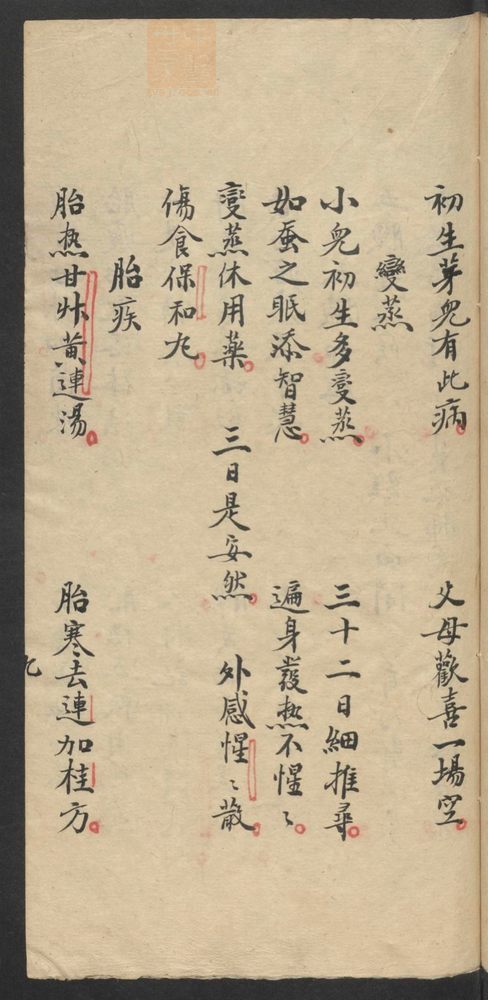 初生芽兒有此病　父母歡喜一場空
變蒸
小兒初生多變蒸　三十二日細推尋
如蚕之眠添智慧　遍身發熱不惺〻
變蒸休用藥　三日是安然　外感惺〻散
傷食保和丸
胎疾
胎熱甘艸黃連湯　胎寒去連加桂方
九